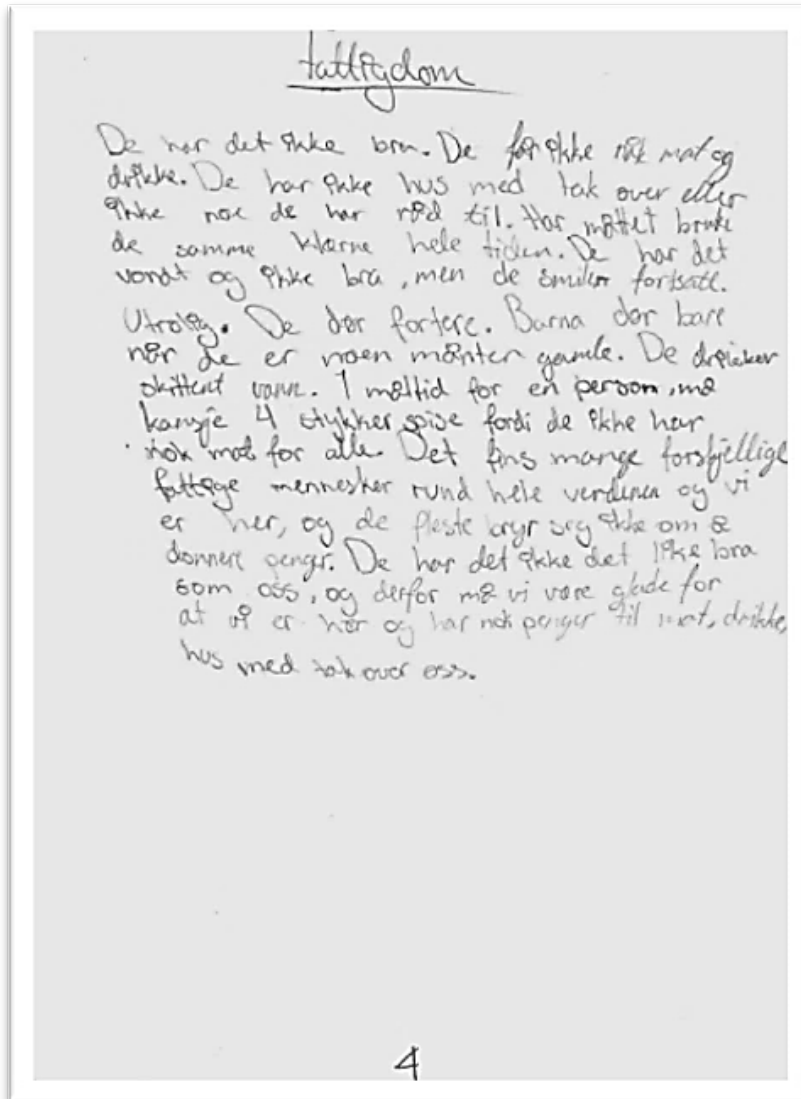 fattigdom
De har det ikke bra. De får ikke nok mat og
drikke. De har ikke hus med tak over eller
ikke noe de har råd til. Har måttet bruke
de samme klærne hele tiden. De har det
vondt og ikke bra, men de smiler fortsatt.
Utrolig. De dør fortere. Barna dør bare
når de er noen månter gamle. De drikker
skittent vann. 1 måltid for en person, må
kansje 4 stykker spise fordi de ikke har
nok mat for alle. Det fins mange forskjellige
fattige mennesker rund hele verdenen og vi
er her, og de fleste bryr seg ikke om å
donnere penger. De har det ikke det like bra
som oss, og derfor må vi være glade for
at vi er her og har nok penger til mat, drikke,
hus med tak over oss.
4